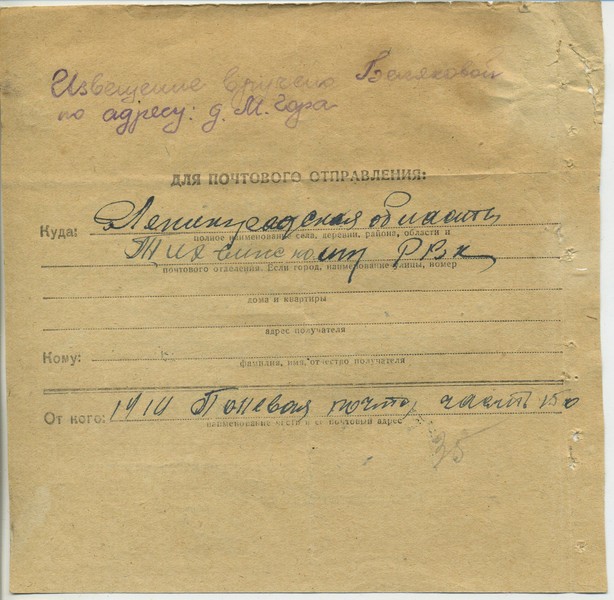 Извещение вручено Беляковой
по адресу: д. М. Гора
ДЛЯ ПОЧТОВОГО ОТПРАВЛЕНИЯ:
Куда: Ленинградская область
полное наименование села, деревни, района, области и
Тихвинскому РВК
почтового отделения. Если город, наименование улицы, номер
дома и квартиры
адрес получателя
Кому:
фамилия, имя, отчество получателя
От кого: 1910 Полевая почта, часть
наименование части и её почтовый адрес
35